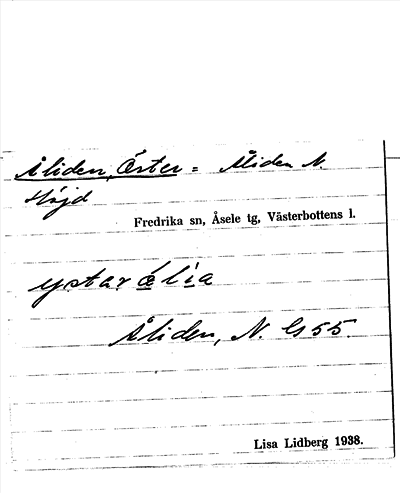 Åliden, Öster = Åliden N.
Höjd
Fredrika sn, Åsele tg, Västerbottens l.
ystar ǽlìa
Åliden, N. G 55.
Lisa Lidberg 1938.